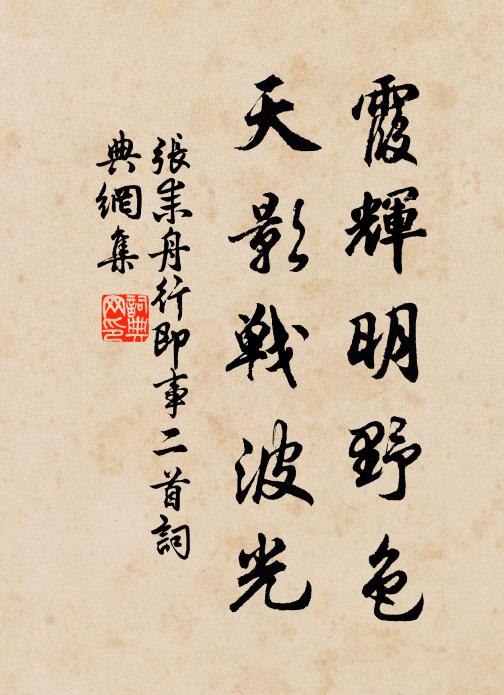 霞輝明野色
天影戰波光
張耒舟行即事二首詞
典網集
詞典
网印